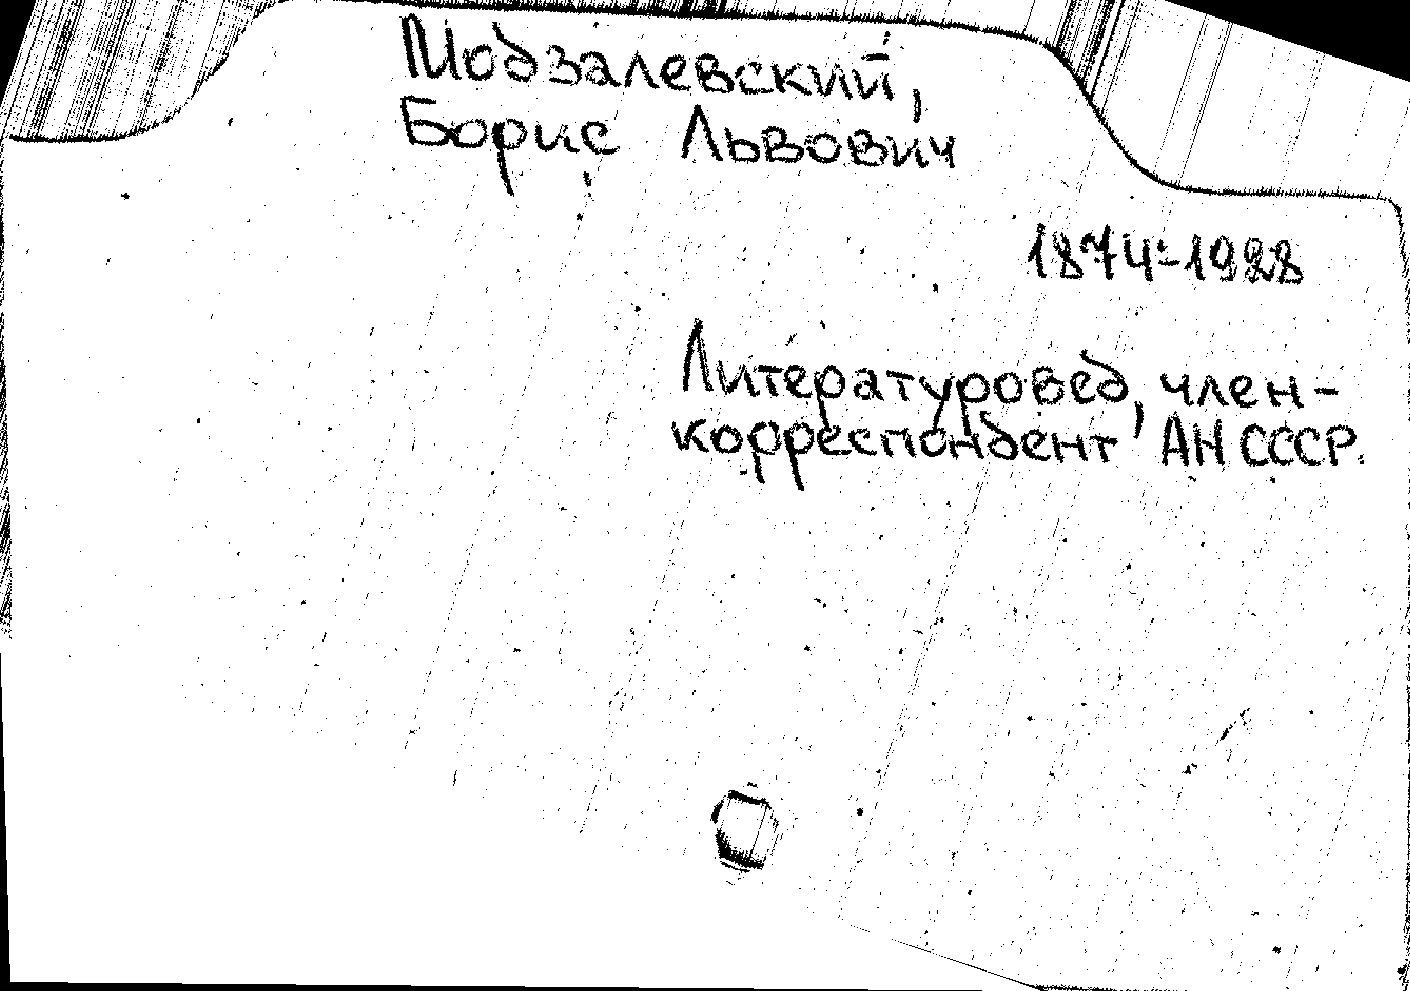 Модзалевский,
Борис Львович
1874-1928
Литературовед, член-
корреспондент АН СССР.